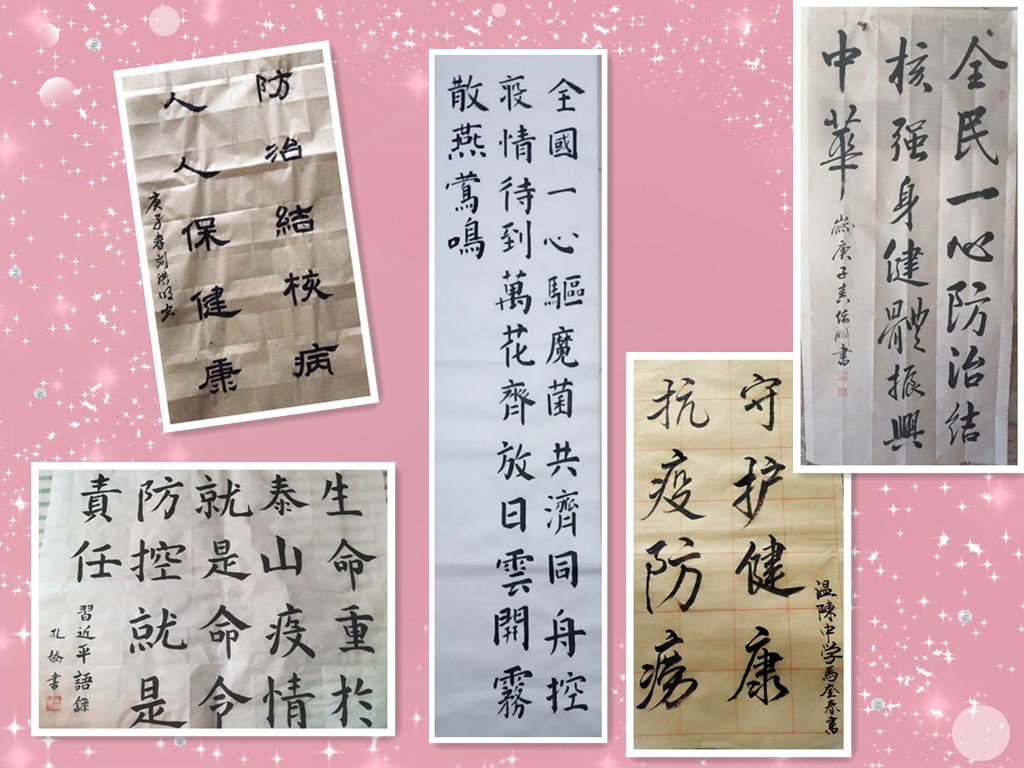 防治結核病
人人保健康
庚子春刘洪明书
全國一心驅魔菌共濟同舟控
疫情待到萬花齊放日雲開霧
散燕鶯鳴
全民一心防治结
核强身健體振興
中華
歲庚子
書
生命重於
泰山疫情
就是命令
防控就是
責任
習近平語錄
孔
書
守护健康
抗疫防痨
温陳中学馬全春書